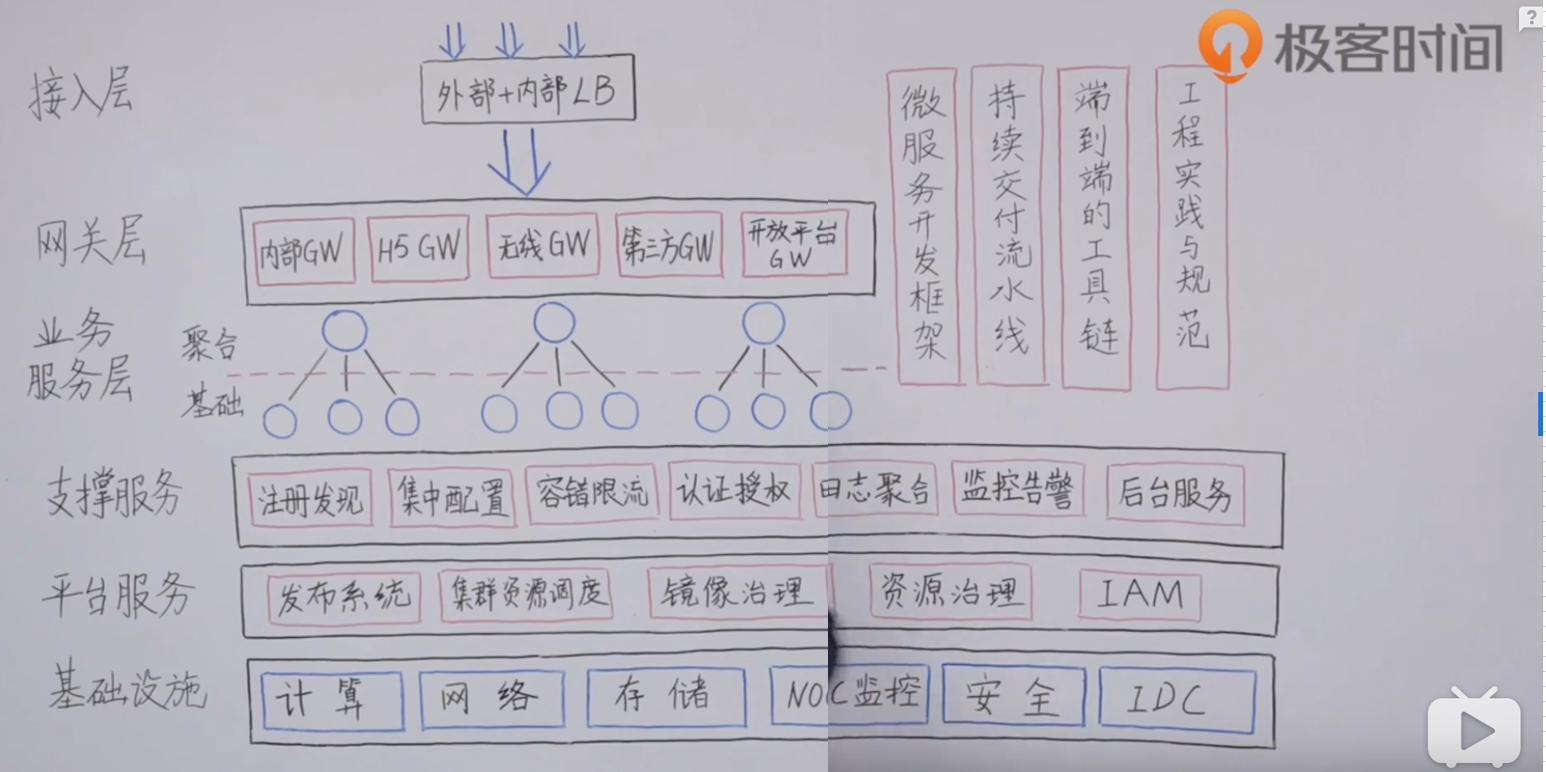 极客时间
?
接入层
外部+内部LB
网关层
内部GW
H5 GW
无线GW
第三方GW
开放平台
GW
业务
服务层
聚合
基础
微服务开发框架
持续交付流水线
端到端的工具链
工程实践与规范
支撑服务
注册发现
集中配置
容错限流
认证授权
日志聚合
监控告警
后台服务
平台服务
发布系统
集群资源调度
镜像治理
资源治理
IAM
基础设施
计算
网络
存储
NOC监控
安全
IDC